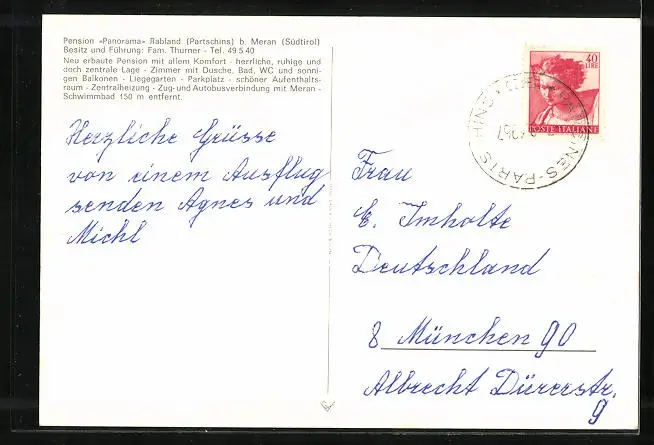 Pension «Panorama» Rabland (Partschins) b. Meran (Südtirol)
Besitz und Führung: Fam. Thurner - Tel. 49 5 40
Neu erbaute Pension mit allem Komfort - herrliche, ruhige und
doch zentrale Lage - Zimmer mit Dusche, Bad, WC und sonni-
gen Balkonen - Liegegarten - Parkplatz - schöner Aufenthalts-
raum - Zentralheizung - Zug- und Autobusverbindung mit Meran -
Schwimmbad 150 m entfernt.
Herzliche Grüsse
von einem Ausflug
senden Agnes und
Michl
40
LIRE
POSTE ITALIANE
Frau
E. Imholte
Deutschland
8 München 90
Albrecht Dürerstr.
9